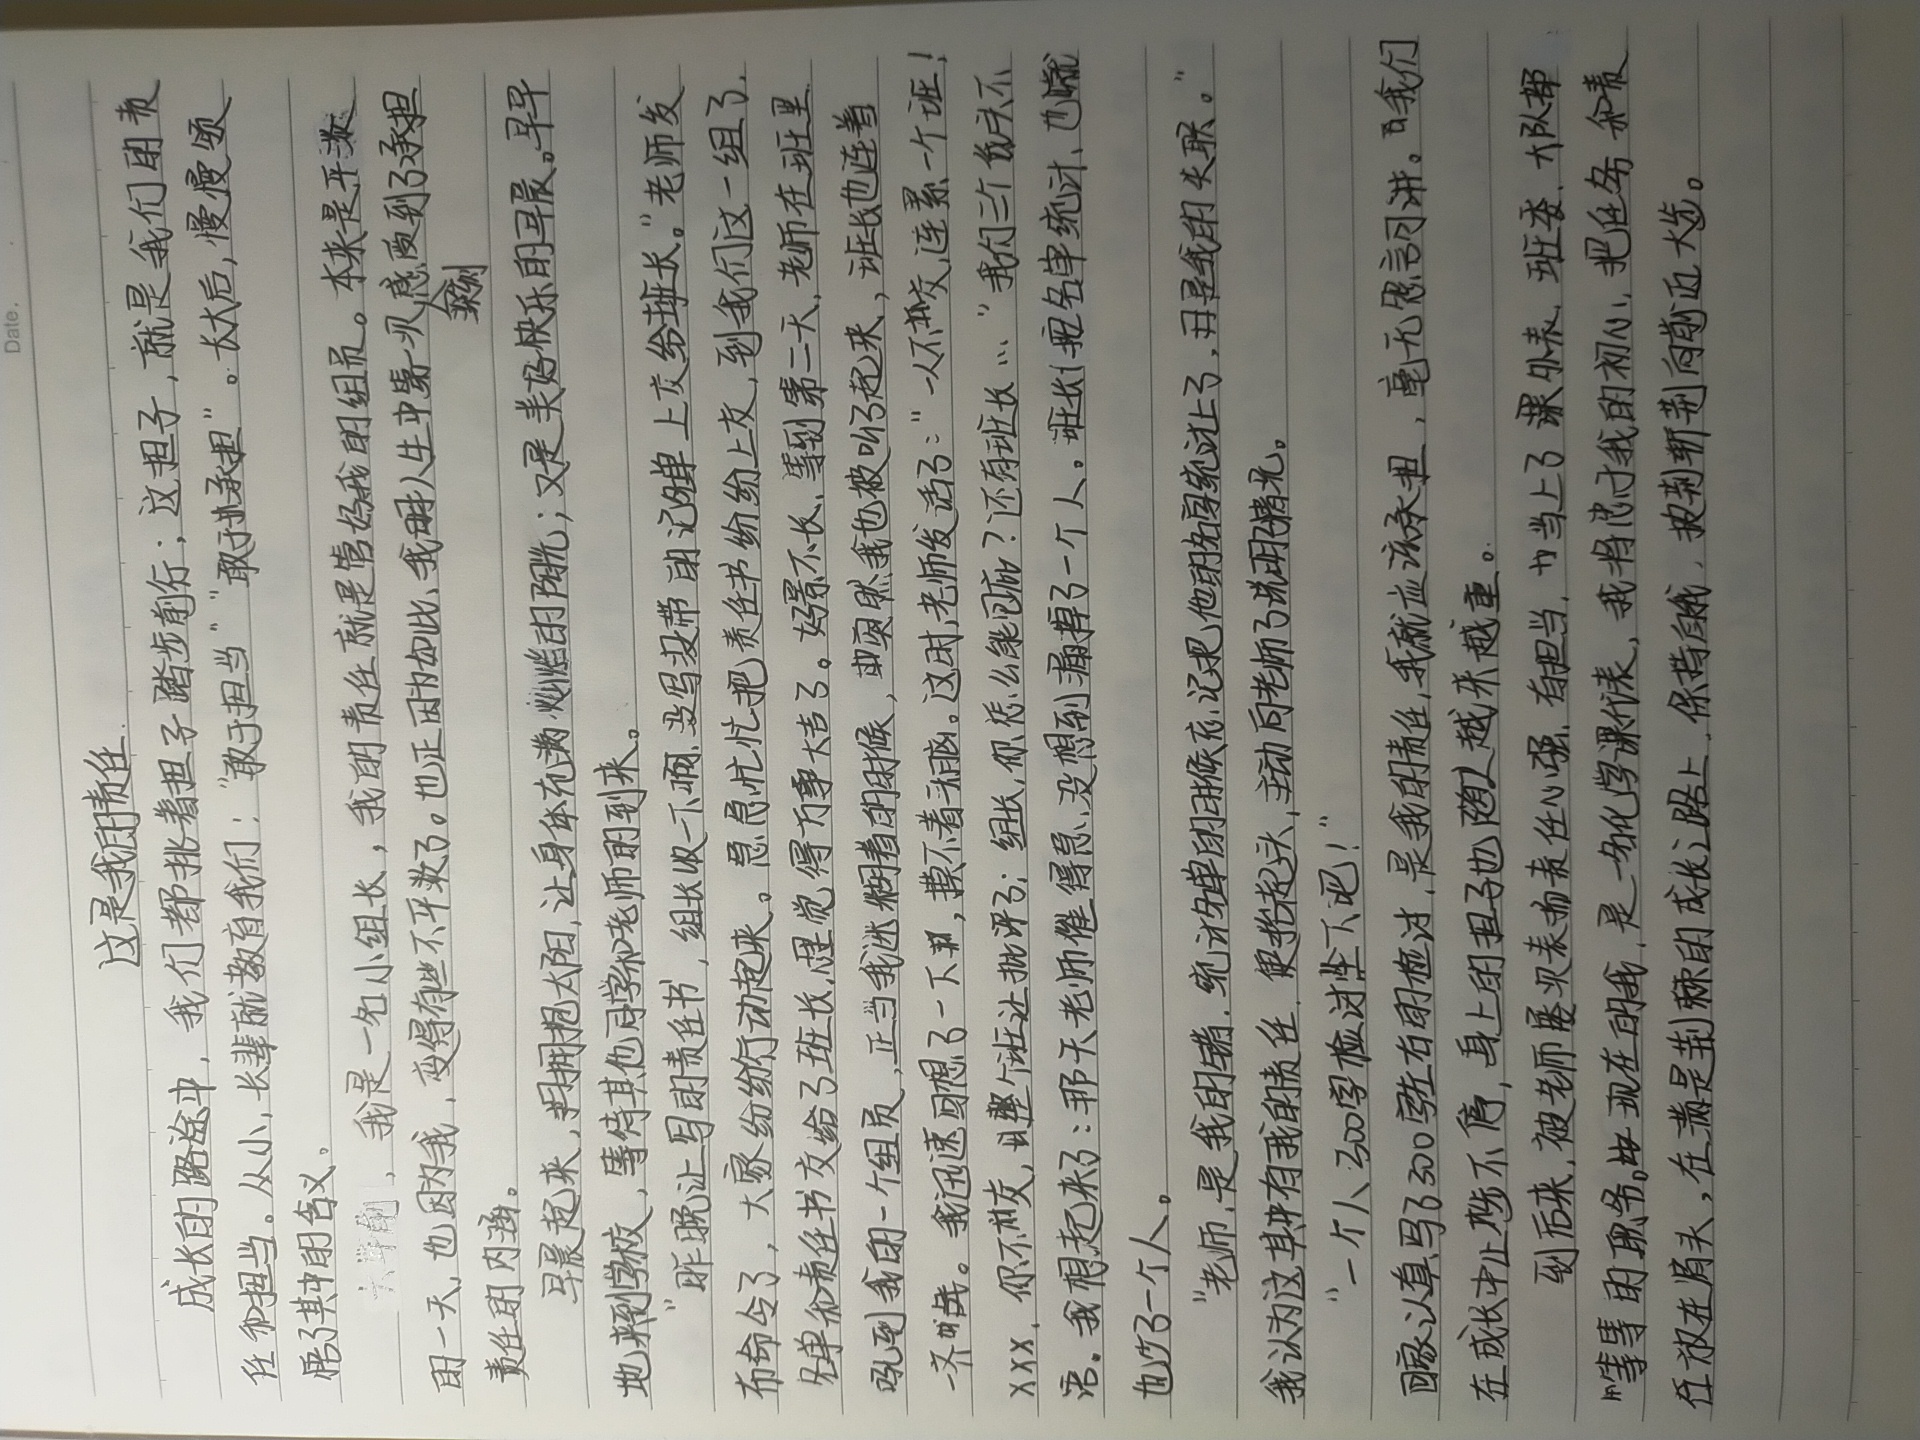 Date.
这是我的责任
成长的路途中，我们都挑着担子踏步前行；这担子，就是我们的责
任和担当。从小，长辈就教育我们：“敢于担当”“敢于承担”。长大后，慢慢领
悟了其中的含义。
六年前，我是一名小组长，我的责任就是管好我的组员。本来是平淡
的一天，也因为我，变得有些不平淡了。也正因为如此，我用人生中第一次感受到了承担
责任的内涵。
早晨起来，拥抱太阳，让身体充满灿烂的阳光；又是美好快乐的早晨。早早
地来到学校，等待其他同学和老师的到来。
“昨晚让写的责任书，组长收一下啊，没写没带的记名单上交给班长。”老师发
布命令了，大家纷纷行动起来。急急忙忙把责任书纷纷上交，到我们这一组了，
名单和责任书交给了班长，便觉得万事大吉了。好景不长，等到第二天，老师在班里
吼到我的一个组员，正当我迷糊着的时候，突然我也被叫了起来，班长也连着
一齐喊。我迅速回想了一下，摸不着头脑。这时，老师发话了：“一人不交，连累一个班！
XXX，你不交，让整个班让批评了；组长，你怎么能包庇？还有班长…”我们三个低头不
语。我想起来了：那天老师催得急，没想到漏掉了一个人。班长把名单统计，也漏
也少了一个人。
“老师，是我的错，统计名单的时候忘记把他的名字统计上了，是我的失职。”
我认为这其中有我的责任，便抬起头，主动向老师说明情况。
“一个人300字检讨，坐下吧！”
回家认真写了300字左右的检讨，是我的责任，我就应该承担，毫无怨言可讲。我们
在成长中止步不停，身上的担子也随之越来越重。
到后来，被老师屡次表扬责任心强，有担当，当上了课外表、班委、大队部
等等的职务。现在的我，是一名化学课代表，我将思讨我的初心，把任务和责
任放在肩头，在满是荆棘的成长之路上，保持自我，披荆斩棘向前迈大步。